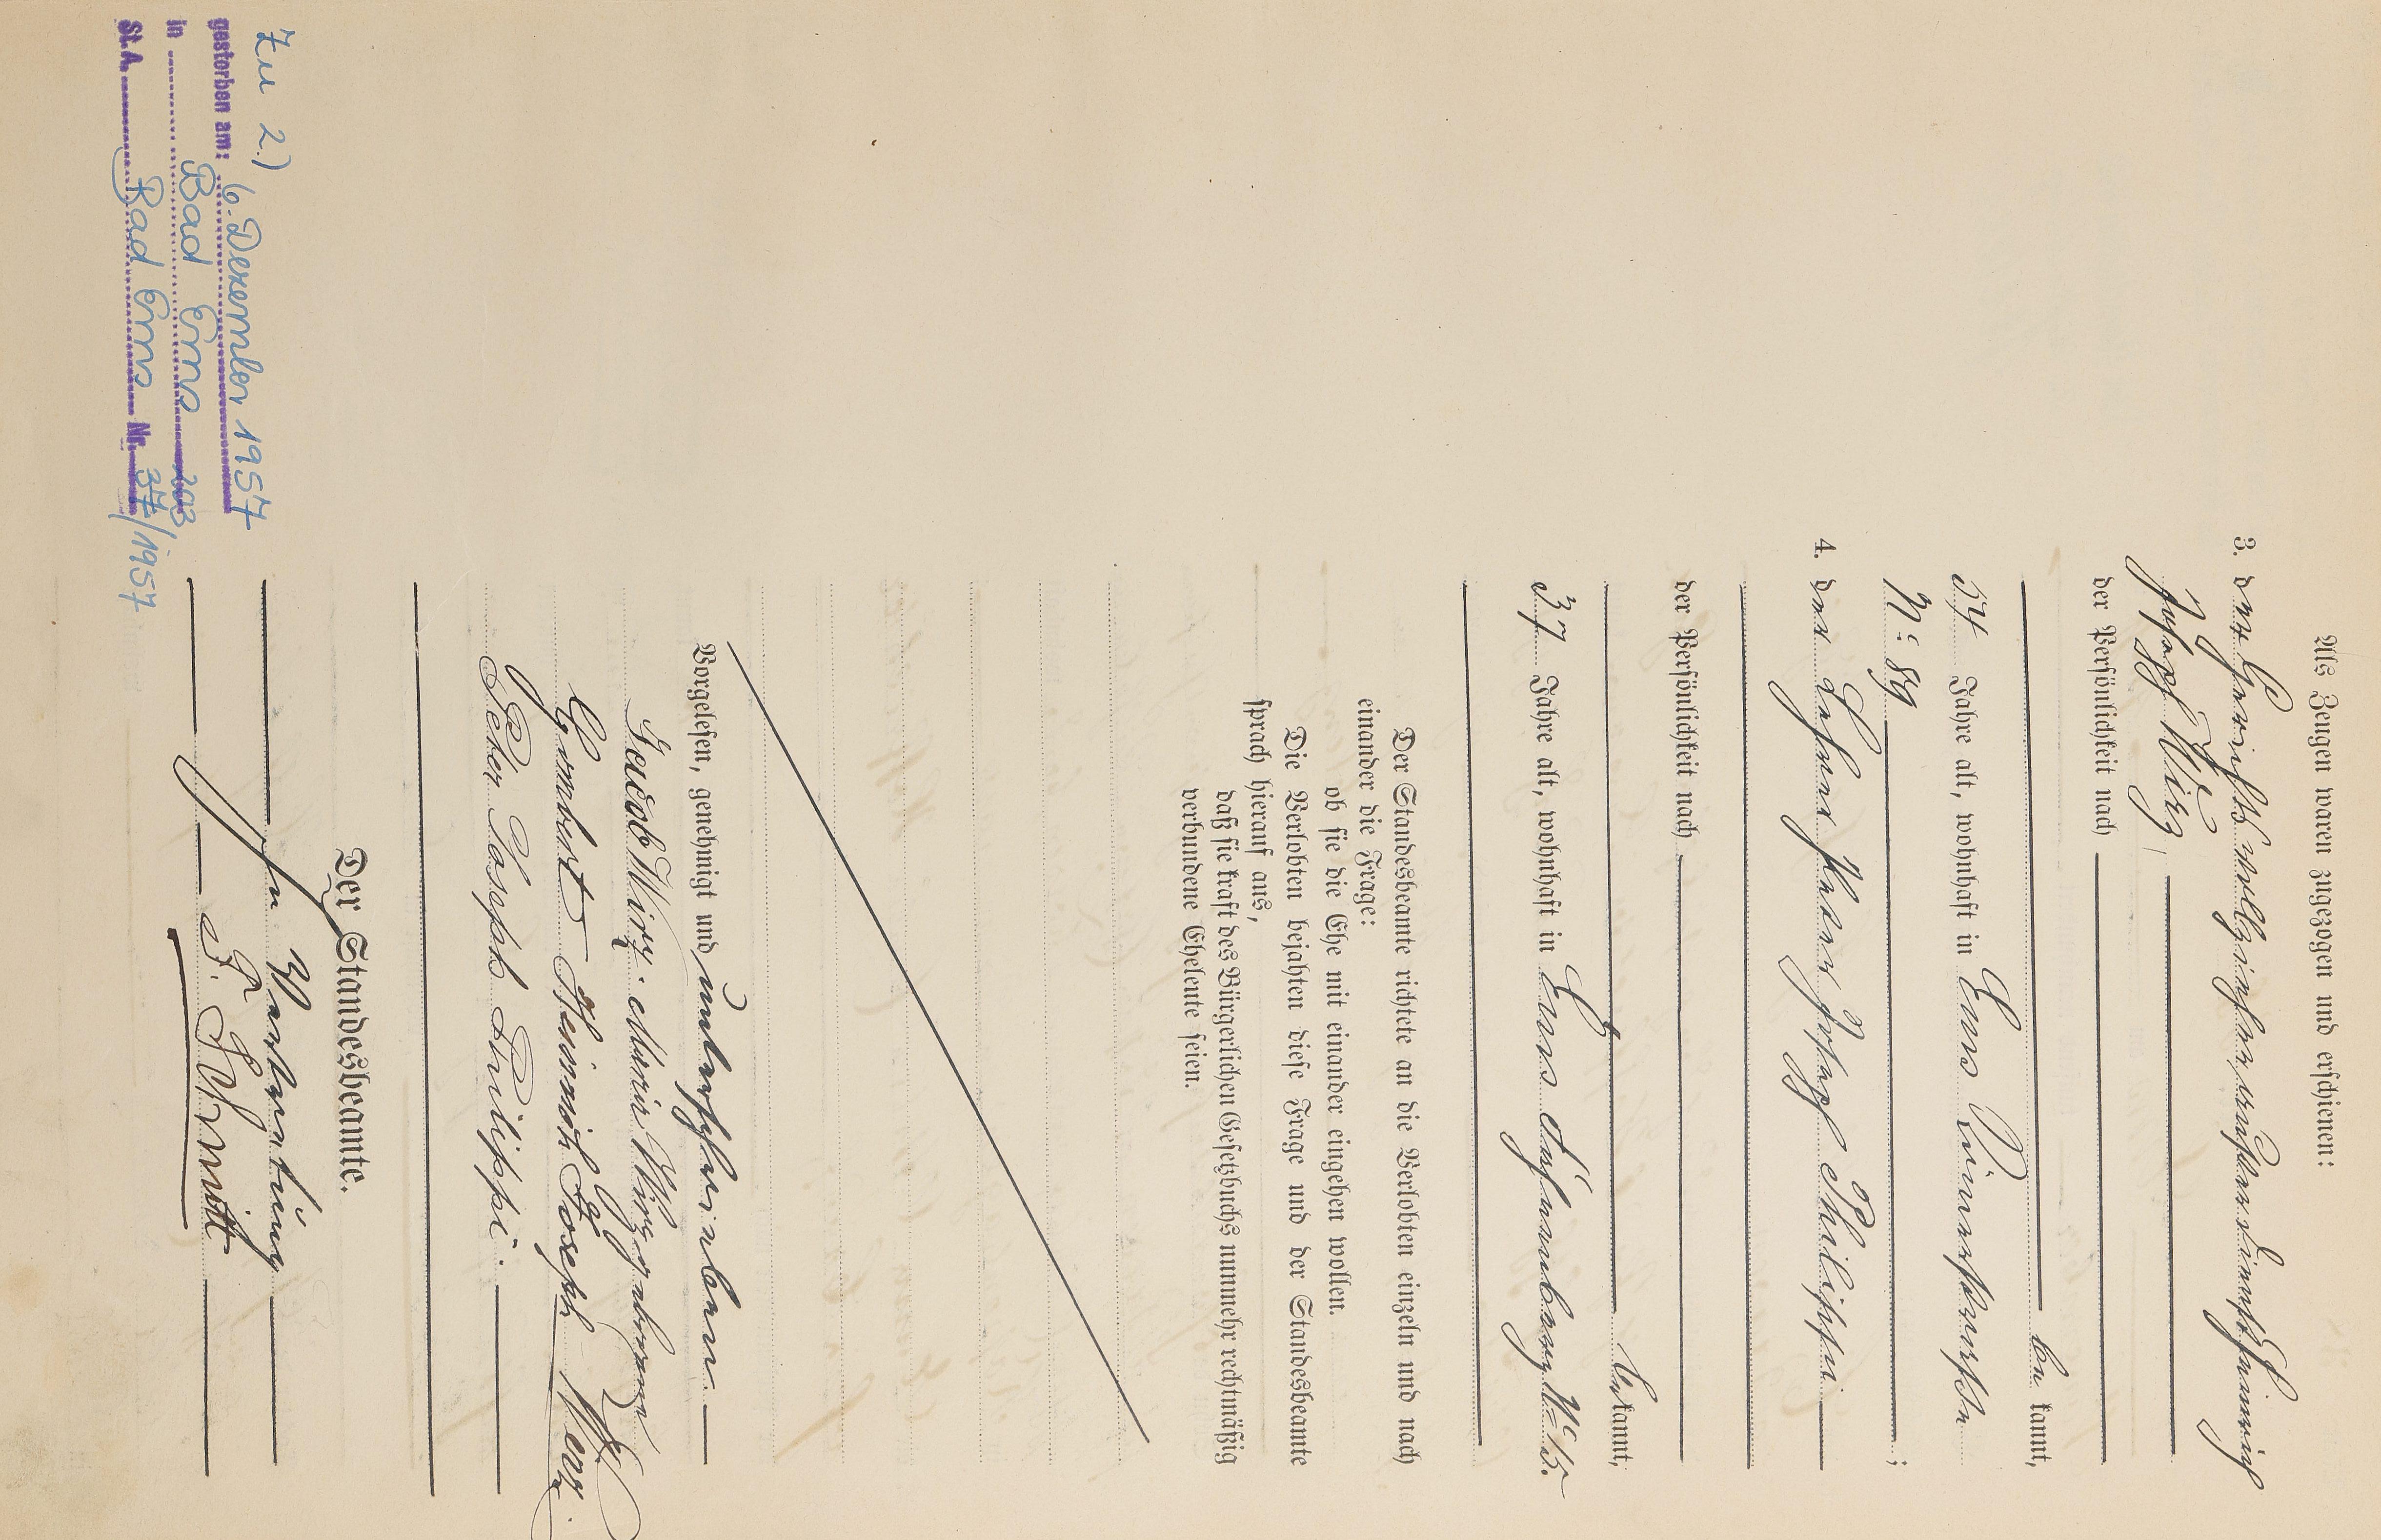 Als Zeugen waren zugezogen und erschienen:
3. der Gerichtsvollzieher außer Dienst Heinrich
Joseph Wirz
der Persönlichkeit nach
be kannt,
54 Jahre alt, wohnhaft in Ems Römerstraße
No 89 ;
4. der Lehrer Peter Joseph Philippi
der Persönlichkeit nach
be kannt,
37 Jahre alt, wohnhaft in Ems No 15.
Der Standesbeamte richtete an die Verlobten einzeln und nach
einander die Frage:
ob sie die Ehe mit einander eingehen wollen.
Die Verlobten bejahten diese Frage und der Standesbeamte
sprach hierauf aus,
daß sie kraft des Bürgerlichen Gesetzbuchs nunmehr rechtmäßig
verbundene Eheleute seien.
Vorgelesen, genehmigt und unterschrieben
Jacob Wirz. Maria Wirz geborene
Gombert Heinrich Joseph Wirz.
Peter Joseph Philippi.
Der Standesbeamte.
In Vertretung
F. Schmitt
Zu 2.)
gestorben am: 6. Dezember 1957
in Bad Ems
St.A. Bad Ems Nr. 203
374/1957